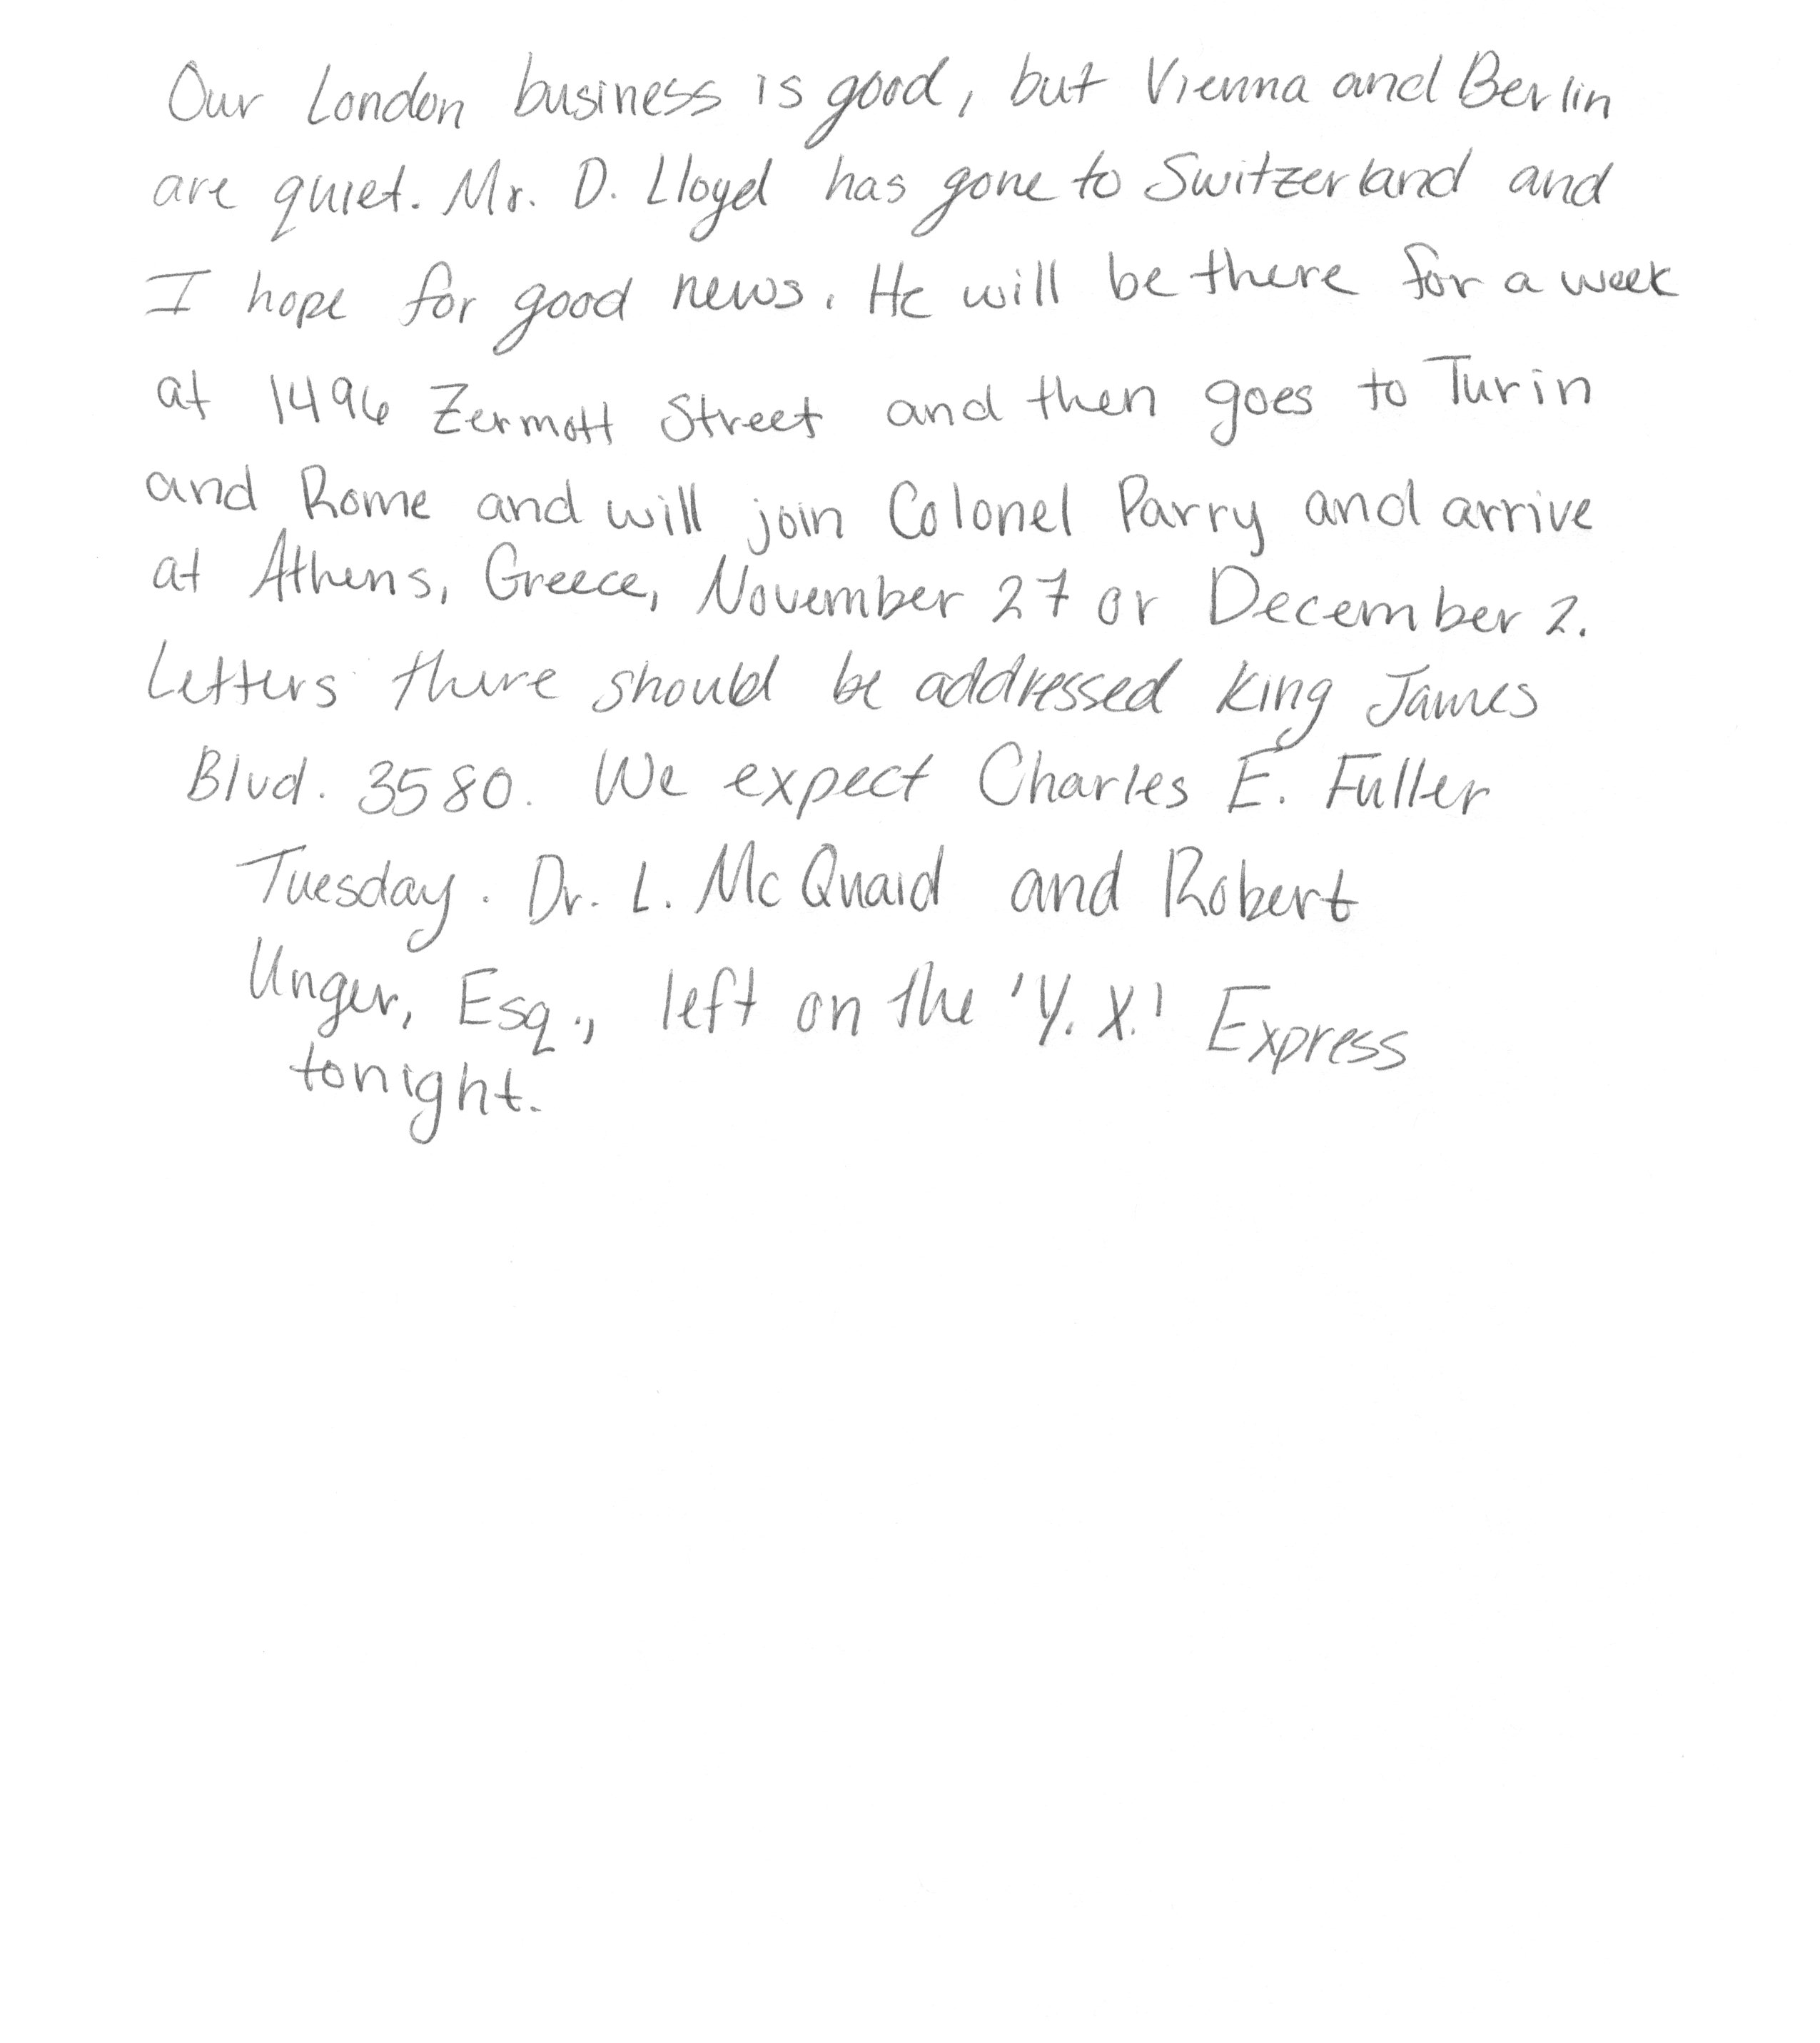 Our London business is good, but Vienna and Berlin
are quiet. Mr. D. Lloyd has gone to Switzerland and
I hope for good news. He will be there for a week
at 1496 Zermott Street and then goes to Turin
and Rome and will join Colonel Parry and arrive
at Athens, Greece, November 27 or December 2.
Letters there should be addressed King James
Blvd. 3580. We expect Charles E. Fuller
Tuesday. Dr. L. McQuaid and Robert
Unger, Esq., left on the 'Y. X.' Express
tonight.